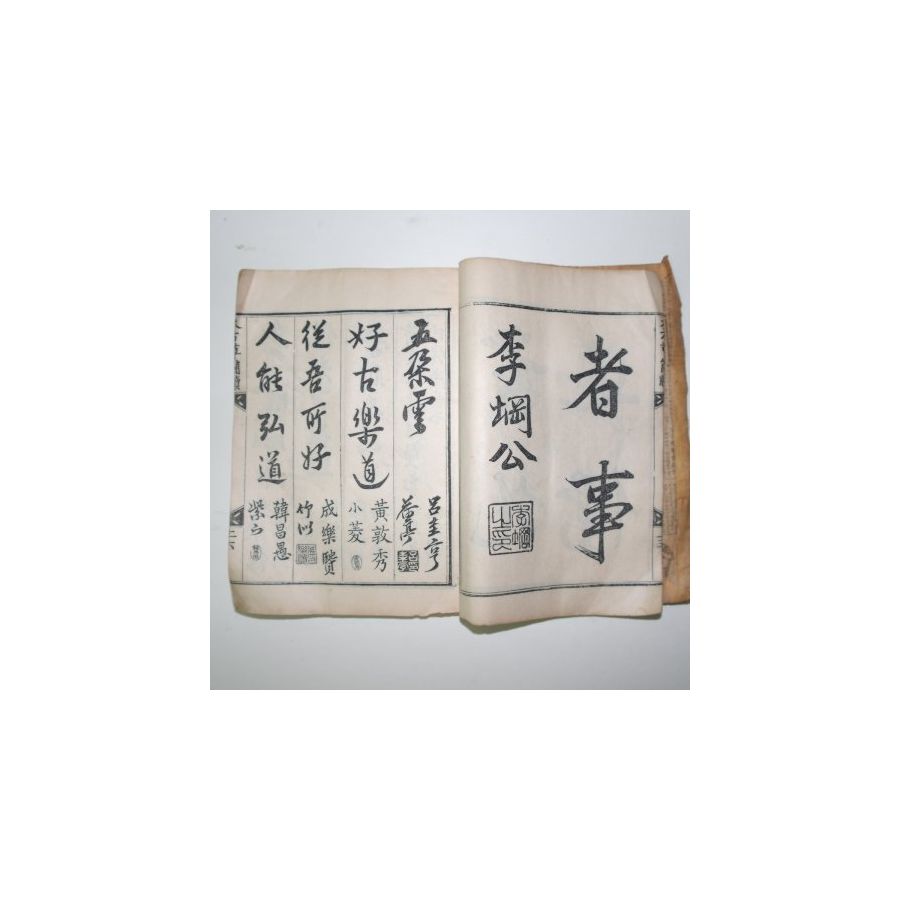 者事
李堈公
五朶雲
呂圭亨
荷亭
好古樂道
黃敦秀
小菱
從吾所好
成樂賢
竹似
人能弘道
韓昌愚
紫